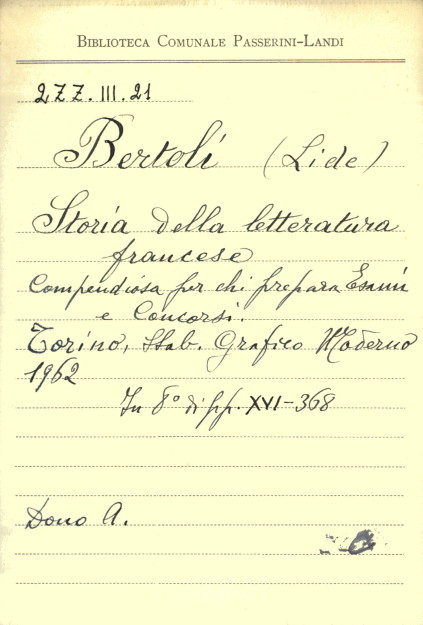 BIBLIOTECA COMUNALE PASSERINI-LANDI
2ZZ.III.21
Bertoli (Lide)
Storia della letteratura
francese
Compendiosa per chi prepara Esami
e Concorsi.
Torino, Stab. Grafico Moderno
1962
In 8° di pp. XVI-368
Dono A.